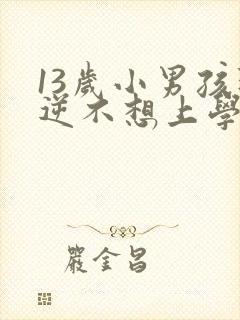 13歲小男孩
逆不想上學
嚴金昌